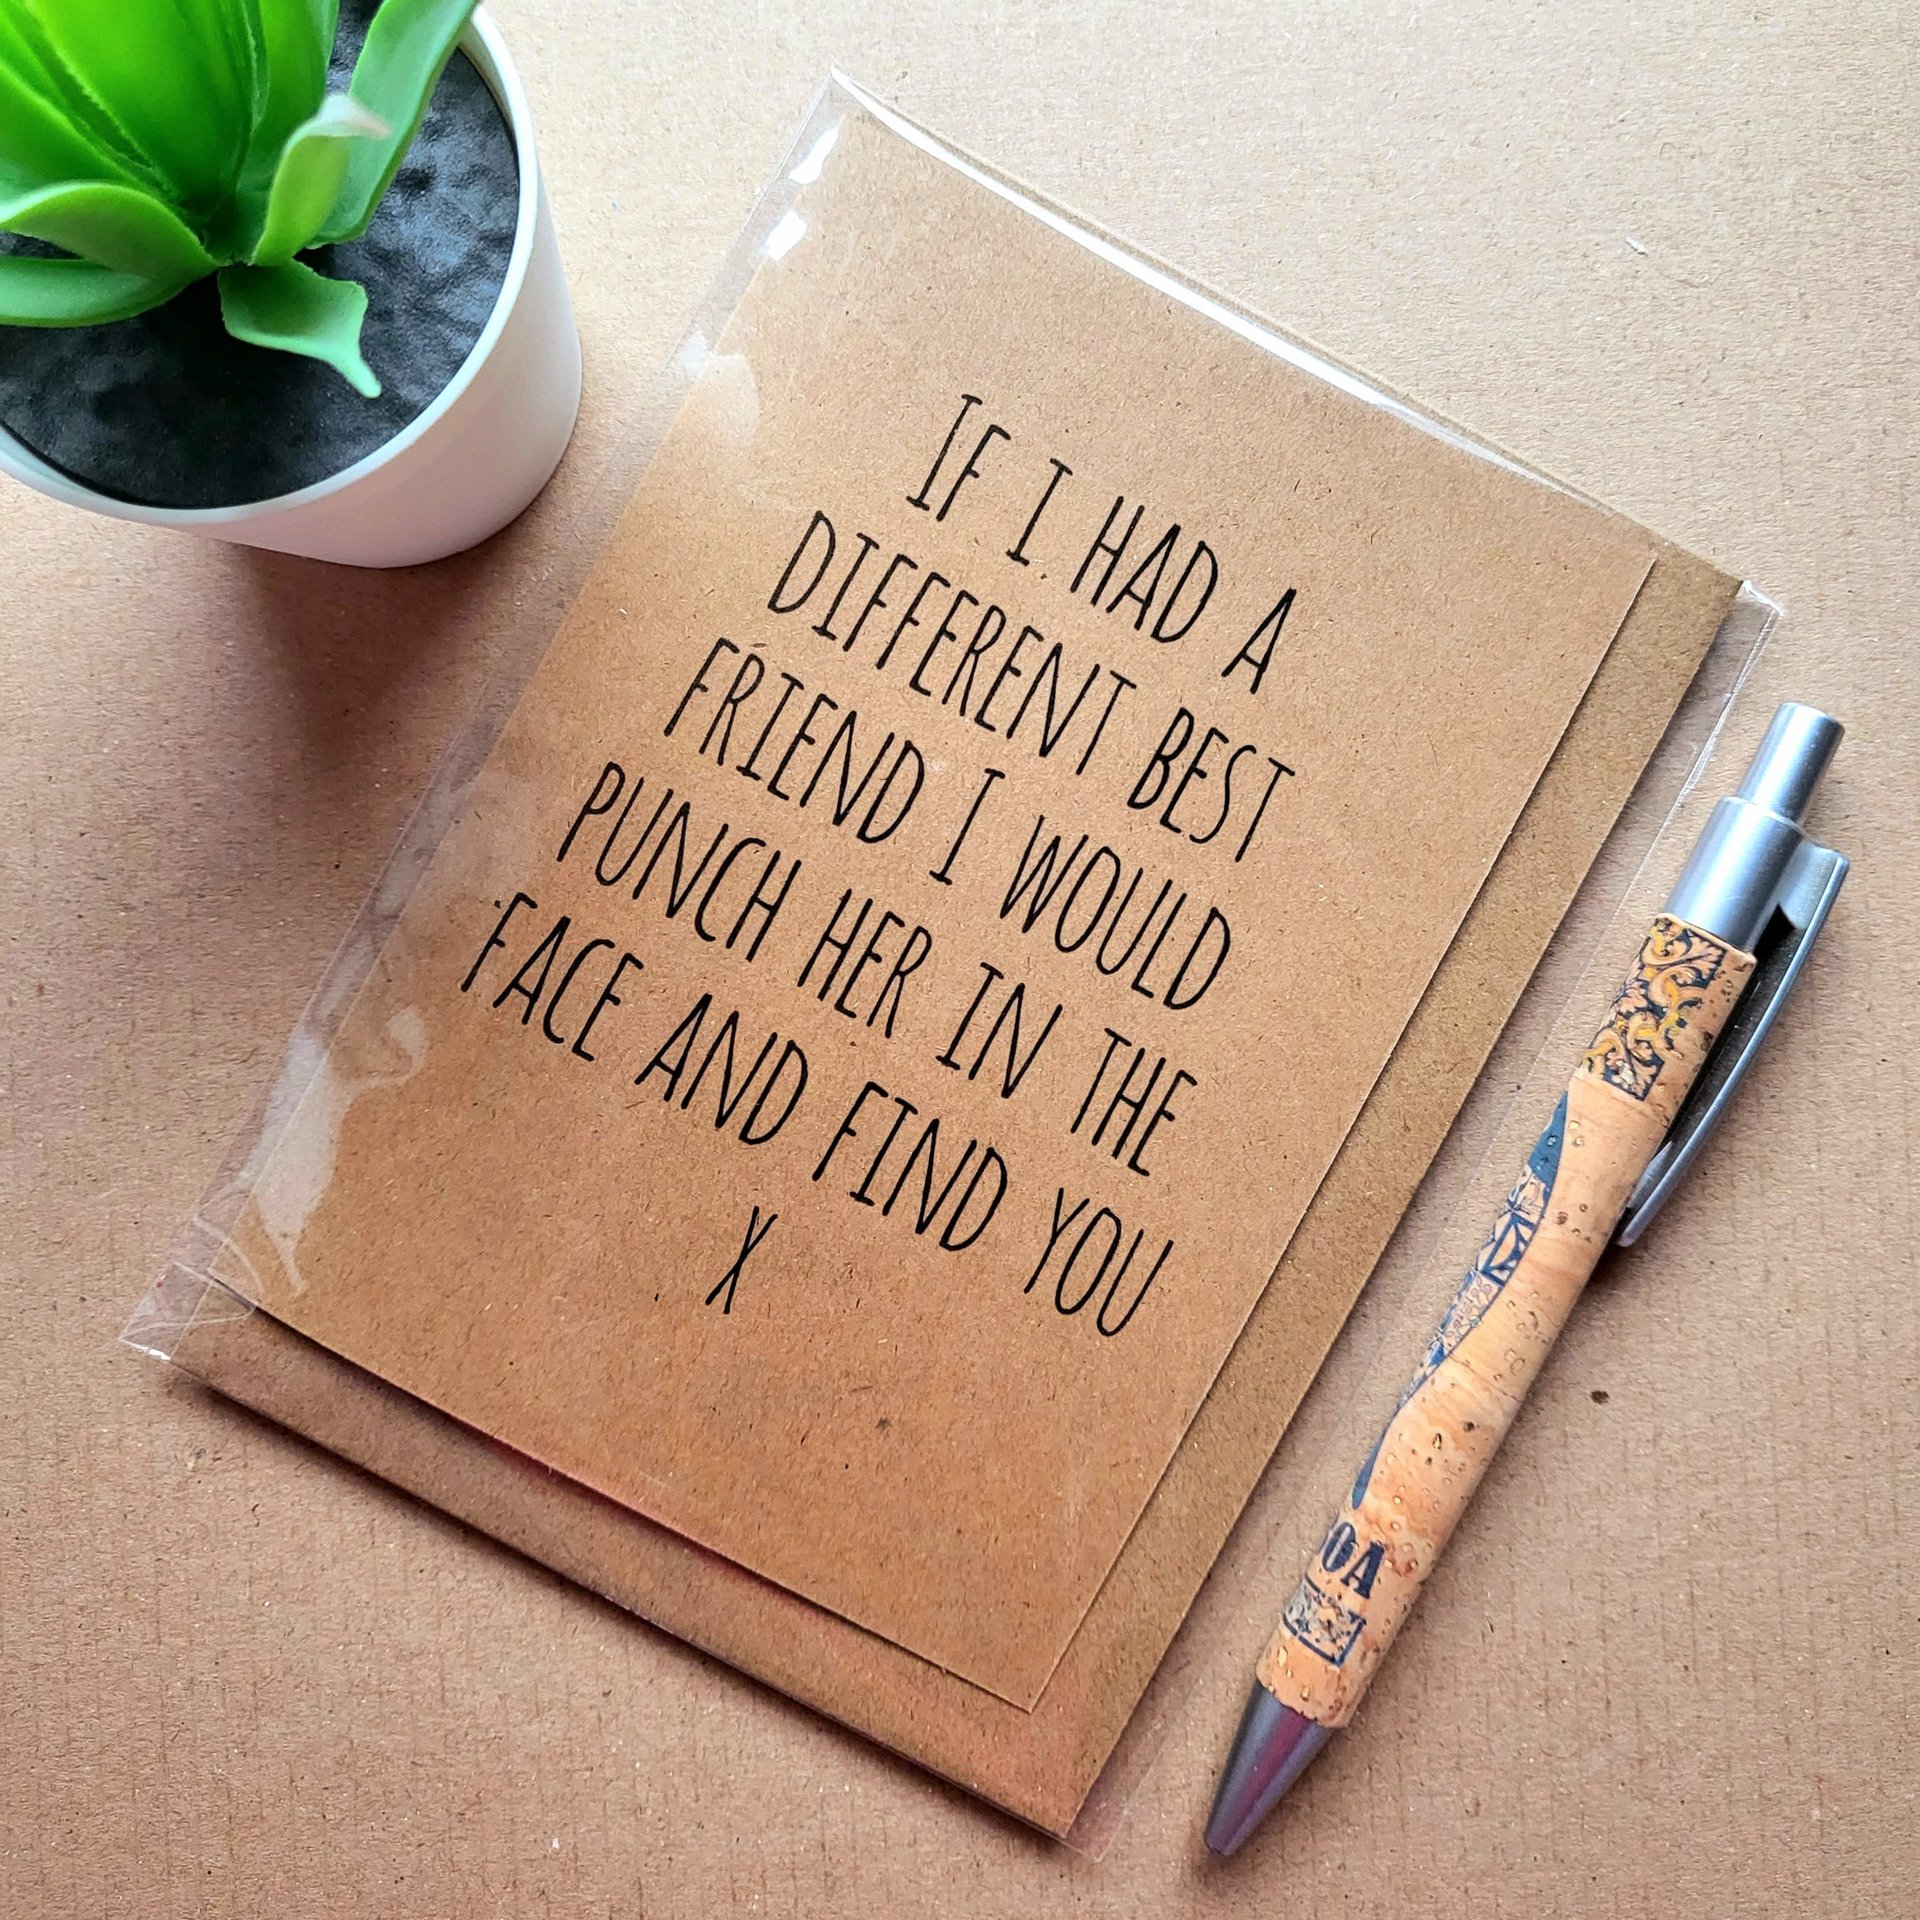 IF I HAD A
DIFFERENT BEST
FRIEND I WOULD
PUNCH HER IN THE
FACE AND FIND YOU
X